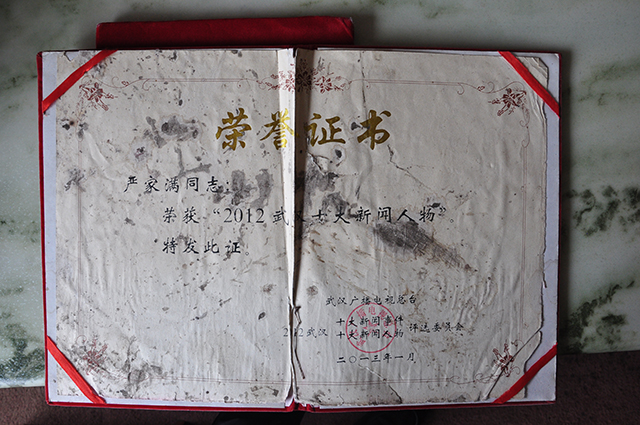 荣誉证书
严家满同志：
荣获“2012武汉十大新闻人物”。
特发此证。
武汉广播电视总台
十大新闻事件
2012武汉 评选委员会
十大新闻人物
二〇一三年一月